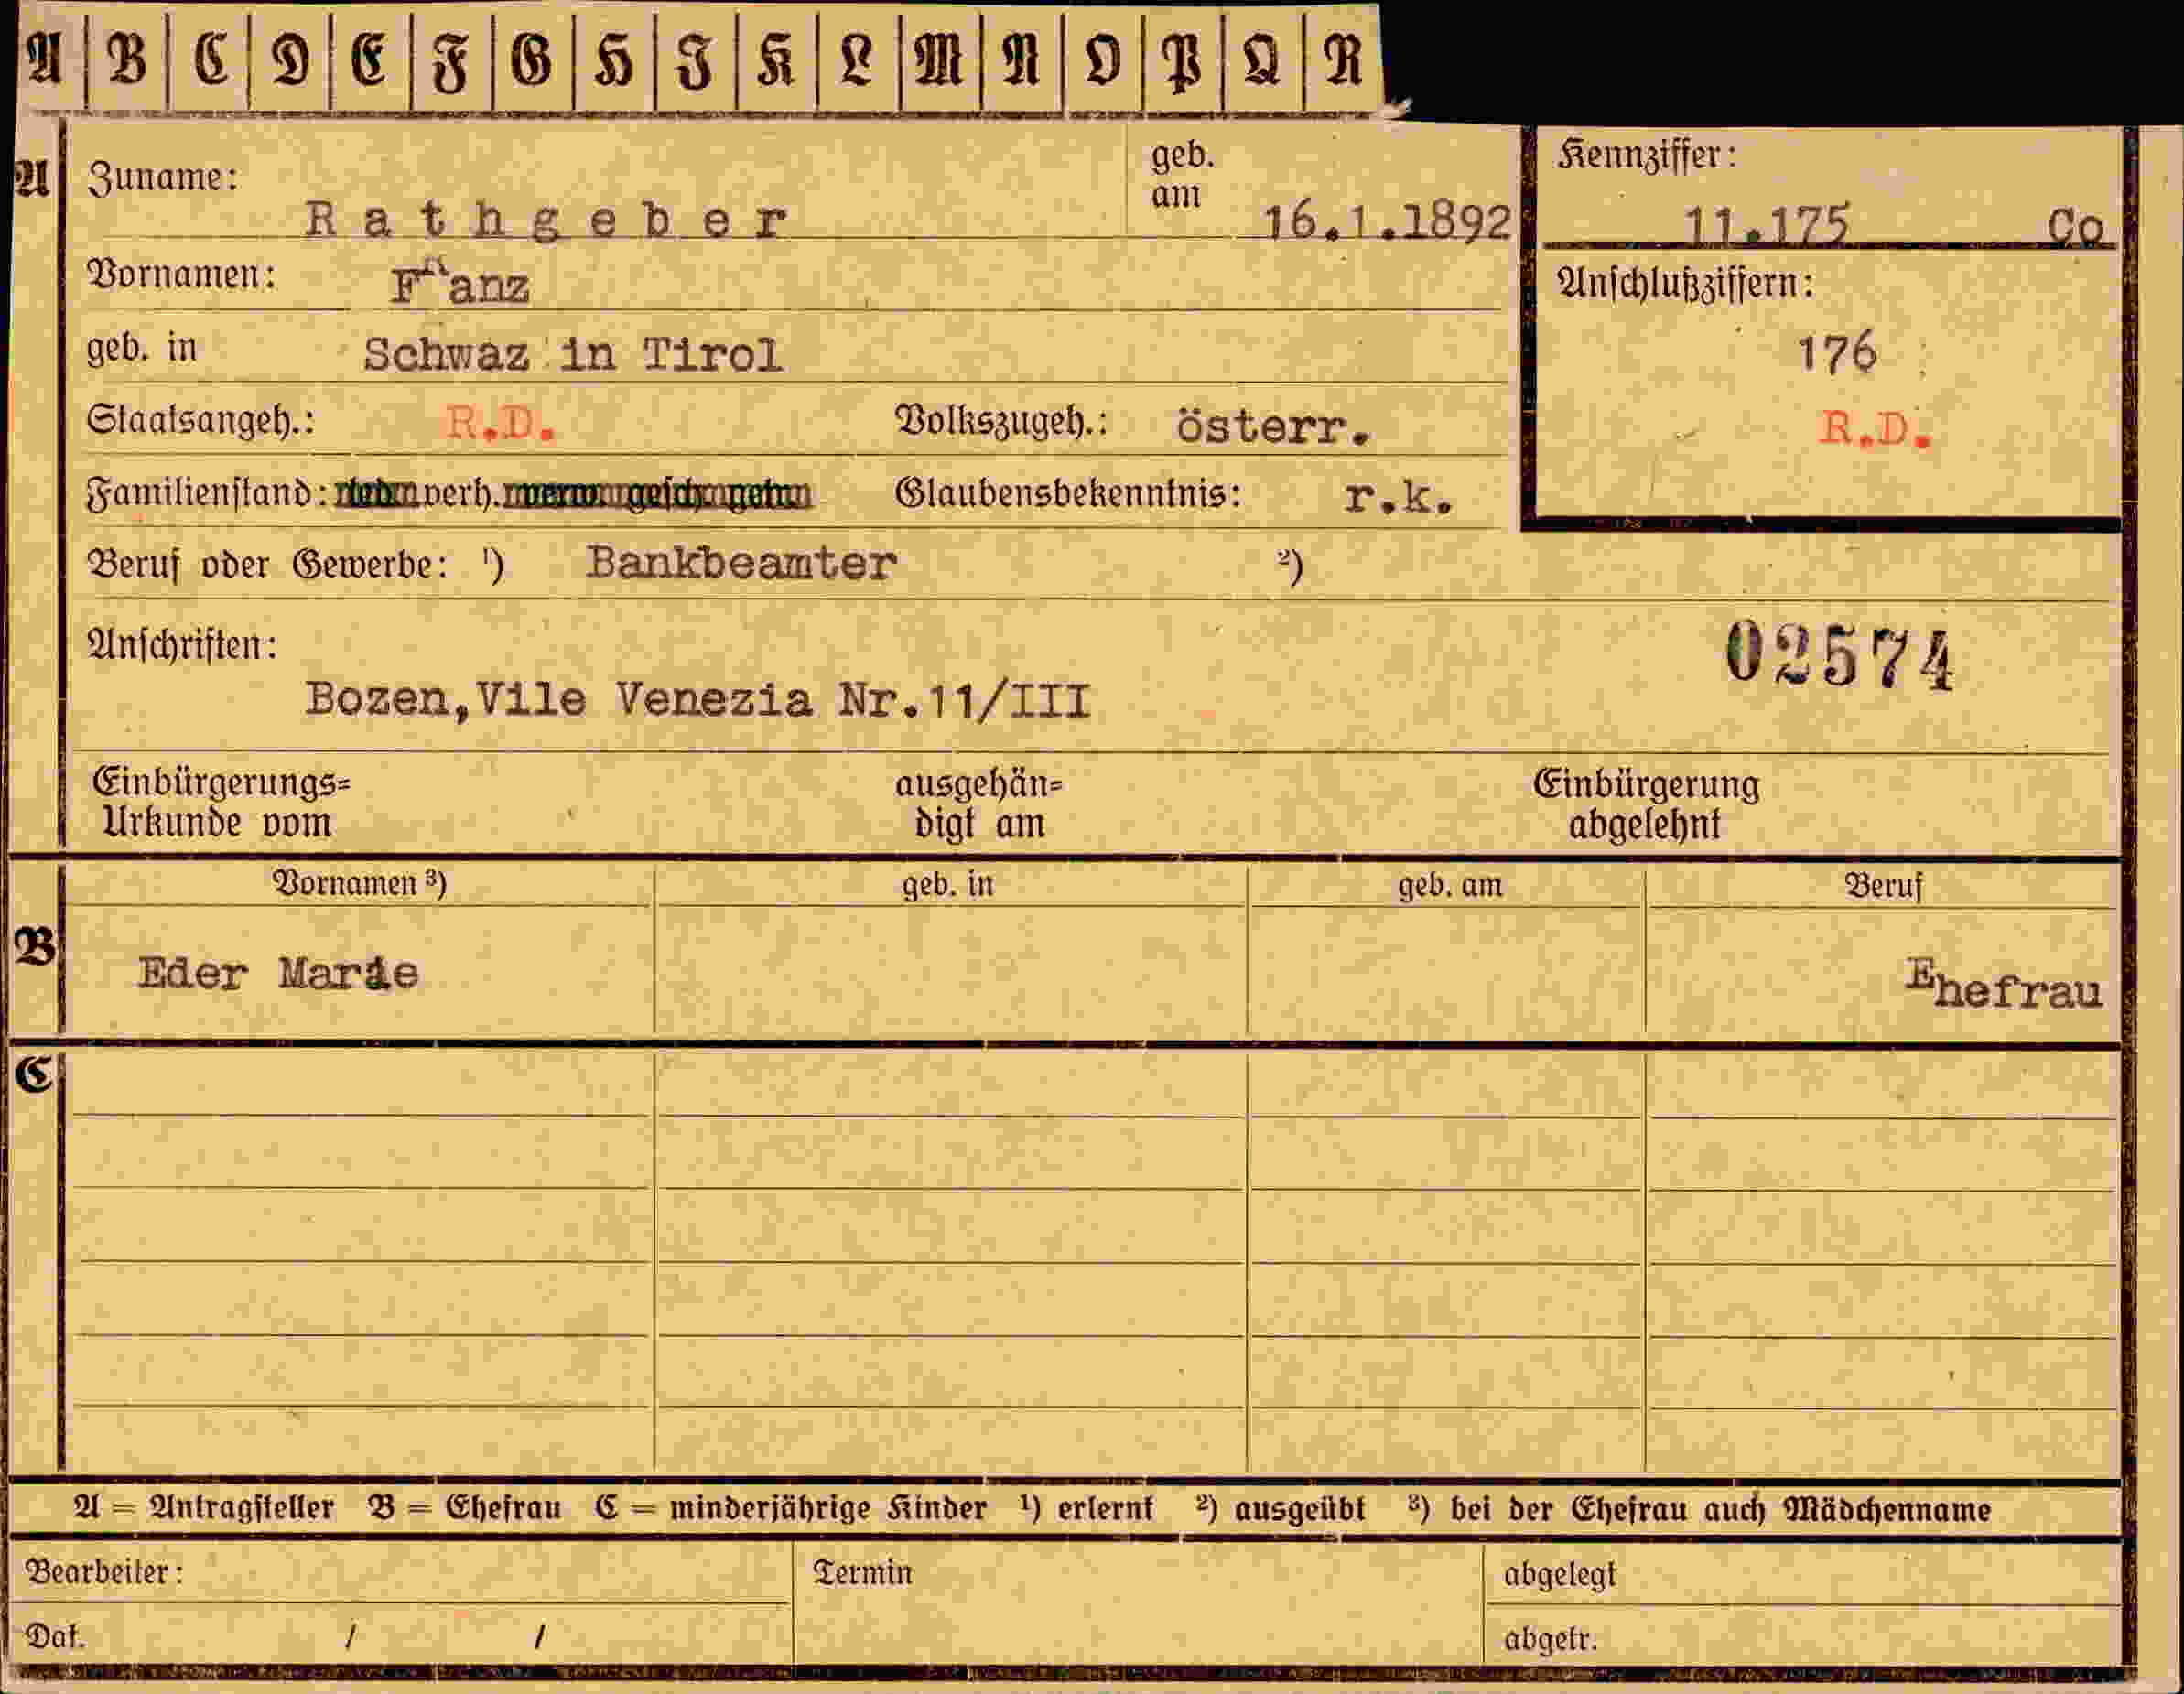 A B C D E F G H I K L M N O P Q R
A Zuname: Rathgeber geb. am 16.1.1892 Kennziffer: 11.175 Co
Vornamen: Franz Anschlußziffern:
geb. in Schwaz in Tirol 176
Staatsangeh.: R.D. Volkszugeh.: österr. R.D.
Familienstand: verh. Glaubensbekenntnis: r.k.
Beruf oder Gewerbe: ¹) Bankbeamter ²)
Anschriften: 02574
Bozen,Vile Venezia Nr.11/III
Einbürgerungs= ausgehän= Einbürgerung
Urkunde vom digt am abgelehnt
Vornamen ³) geb. in geb. am Beruf
B Eder Marie Ehefrau
C
A = Antragsteller B = Ehefrau C = minderjährige Kinder ¹) erlernt ²) ausgeübt ³) bei der Ehefrau auch Mädchenname
Bearbeiter: Termin abgelegt
Dat. / / abgetr.